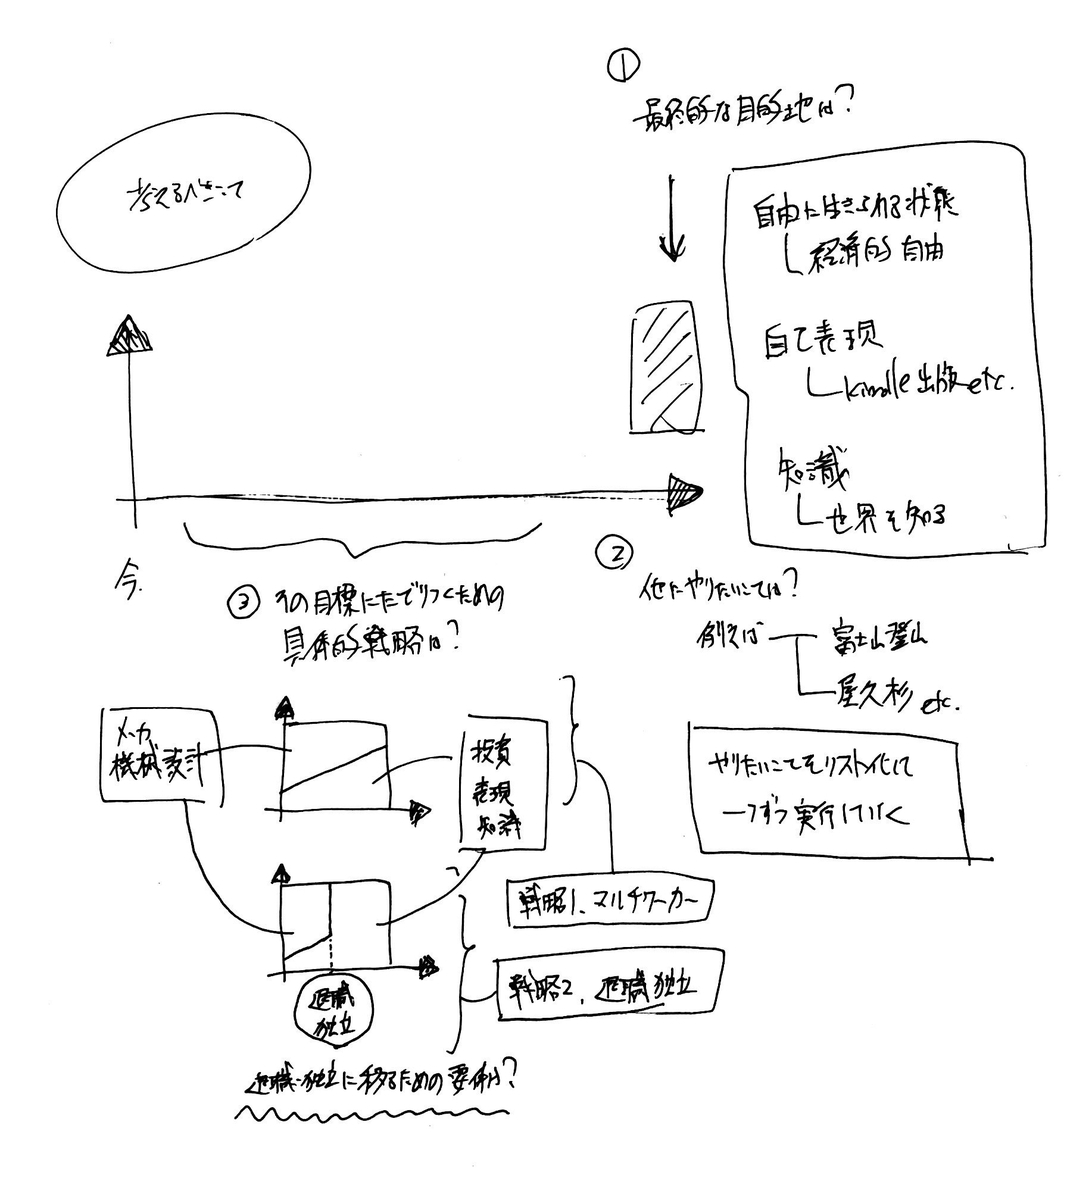 考えるべきこと
①
最終的な目的地は?
自由に生きられる状態
経済的自由
自己表現
kindle出版etc.
知識
世界を知る
今.
②
他にやりたいことは?
例えば
富士山登山
屋久杉 etc.
やりたいことをリスト化して
一つずつ実行していく
③ その目標にたどりつくための
具体的戦略は?
メーカ
機械設計
投資
表現
知識
戦略1、マルチワーカー
戦略2、退職独立
退職
独立
退職・独立に移るための要件は?